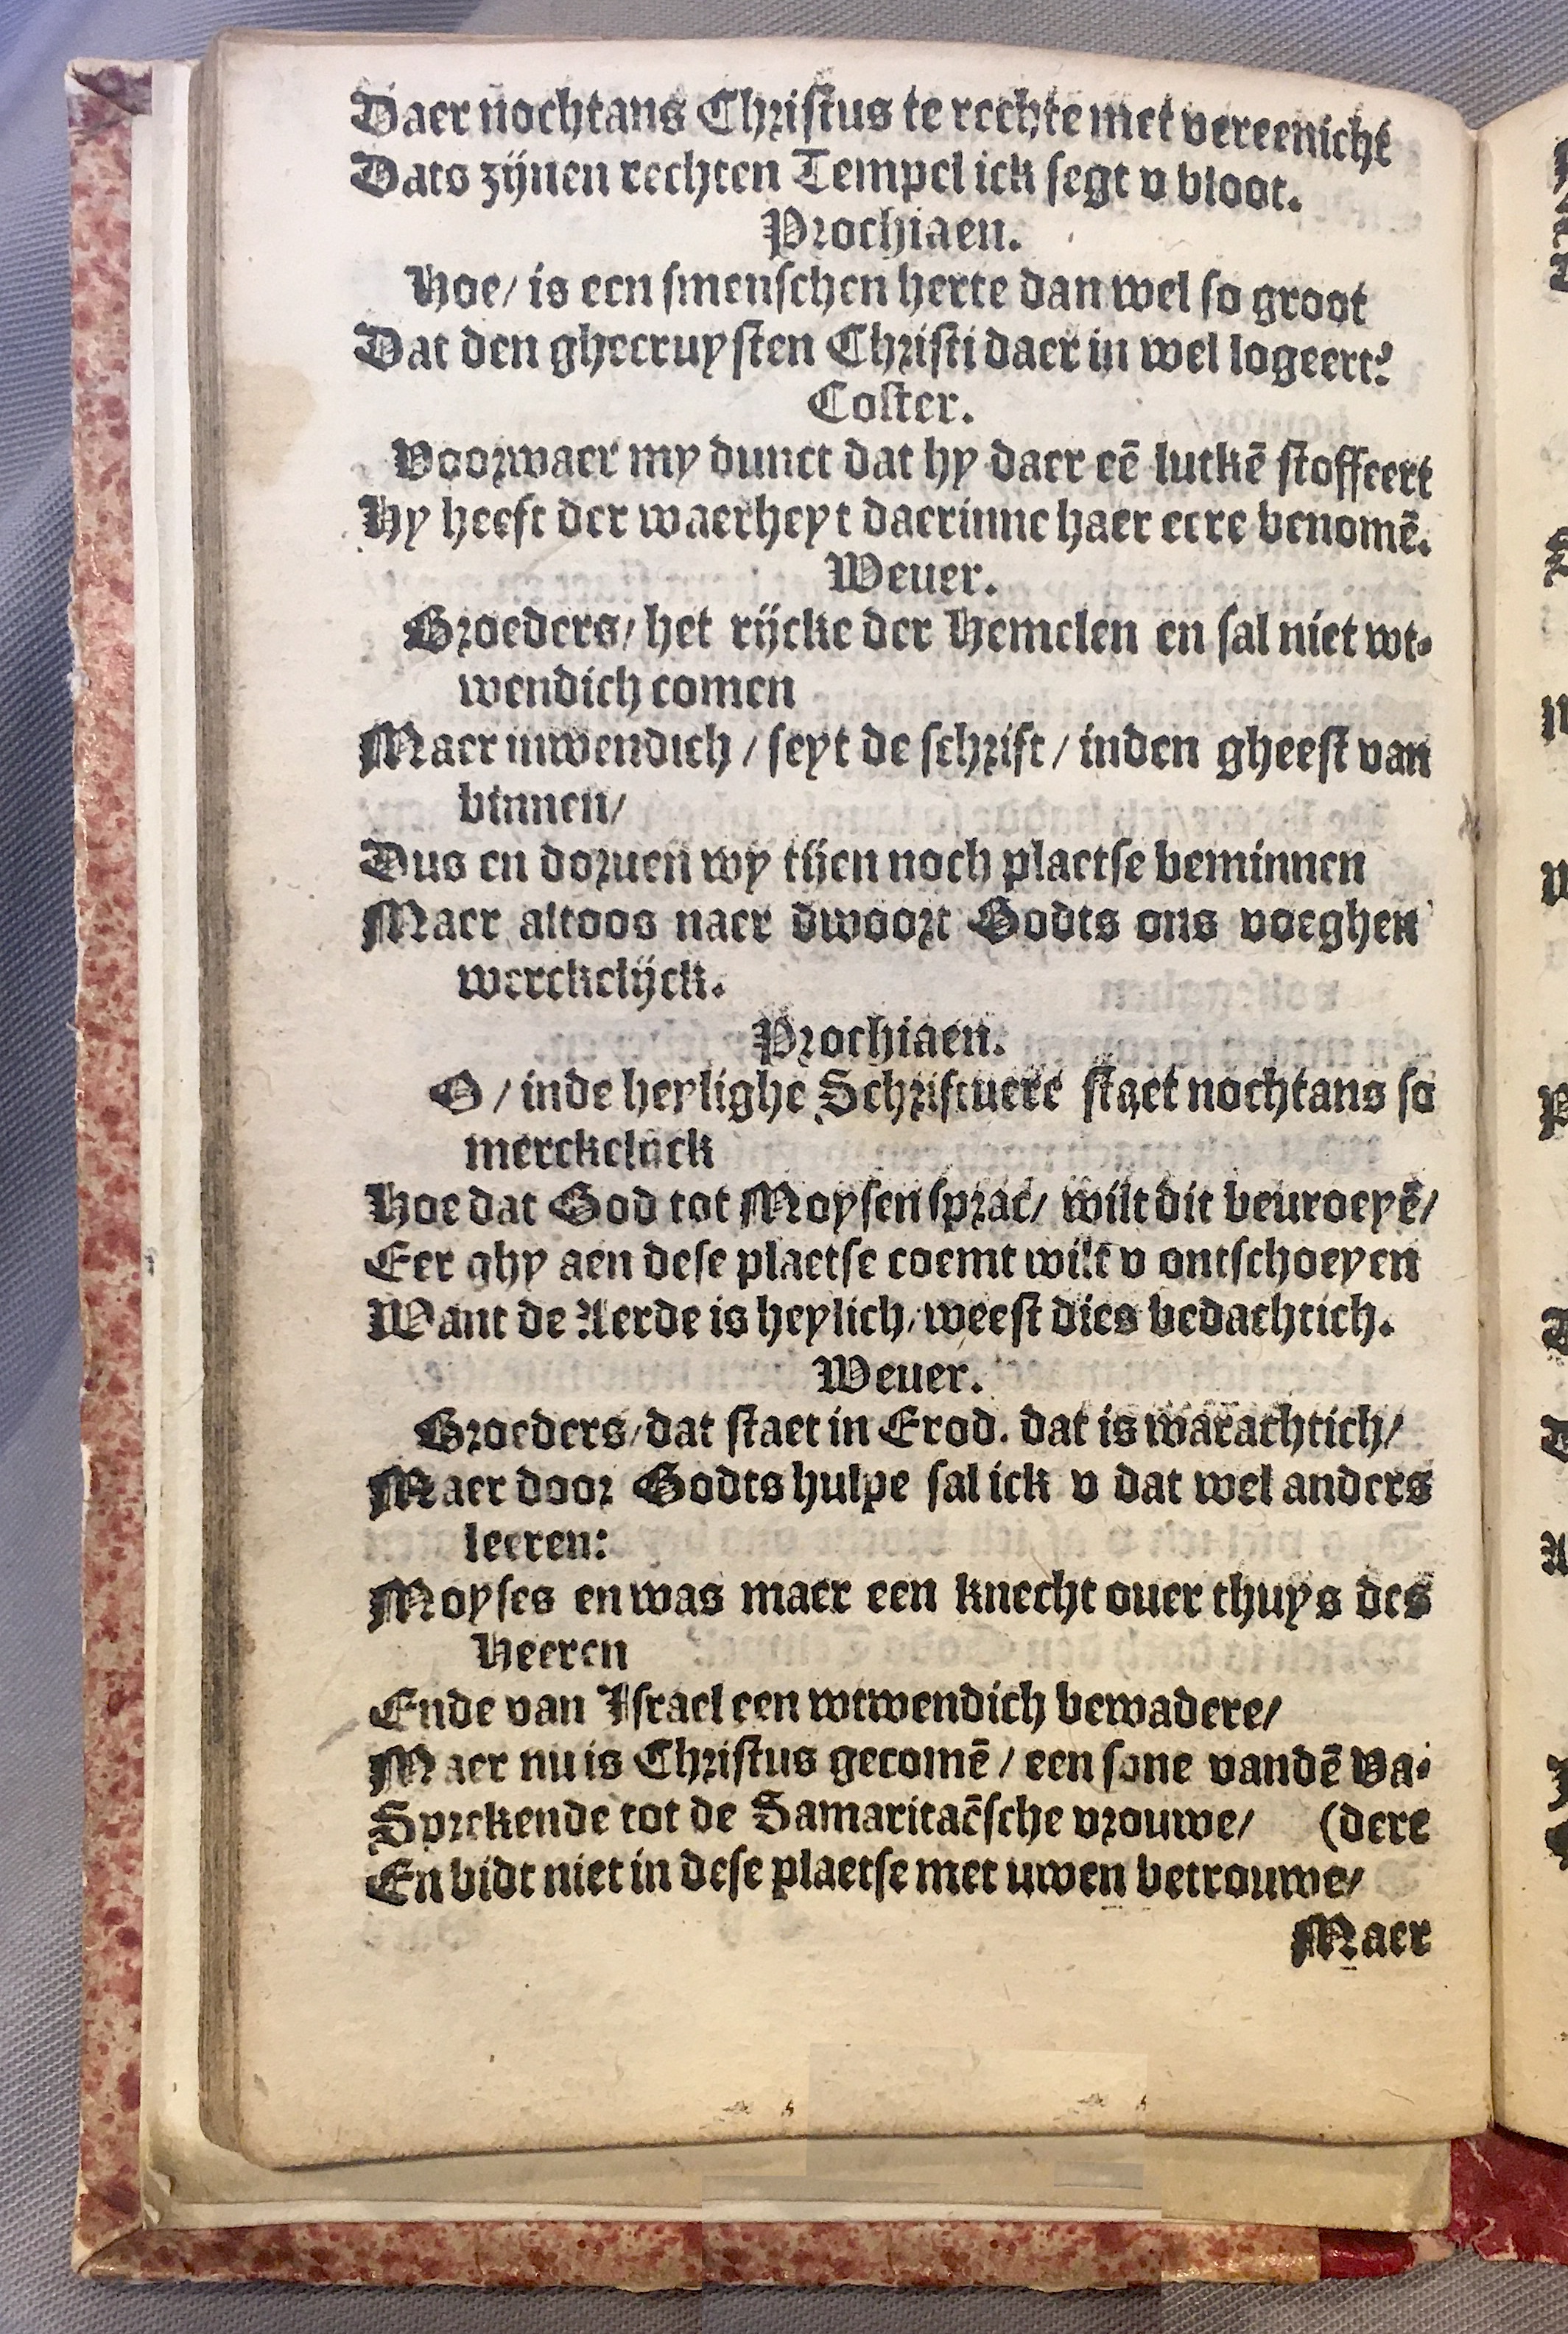 Daer nochtans Christus te rechte met vereenicht
Dats zijnen rechten Tempel ick segt v bloot.
Prochiaen.
Hoe/ is een smenschen herte dan wel so groot
Dat den ghecruysten Christi daer in wel logeert?
Coster.
Voorwaer my dunct dat hy daer eē lutkē stoffeert
Hy heeft der waerheyt daerinne haer eere benomē.
Weuer.
Broeders/ het rijcke der Hemelen en sal niet wt-
wendich comen
Maer inwendich / seyt de schrift / inden gheest van
binnen/
Dus en doruen wy tijen noch plaetse beminnen
Maer altoos naer dwoort Godts ons voeghen
werckelijck.
Prochiaen.
O / inde heylighe Schriftuere staet nochtans so
merckelijck
Hoe dat God tot Moysen sprac/ wilt dit beuroeyē/
Eer ghy aen dese plaetse coemt wilt v ontschoeyen
Want de Aerde is heylich/ weest dies bedachtich.
Weuer.
Broeders/ dat staet in Exod. dat is warachtich/
Maer door Godts hulpe sal ick v dat wel anders
leeren:
Moyses en was maer een knecht ouer thuys des
Heeren
Ende van Israel een wtwendich bewadere/
Maer nu is Christus gecomē / een sone vandē Va-
Sprekende tot de Samaritaēsche vrouwe/ (dere
En bidt niet in dese plaetse met uwen betrouwe/
Maer